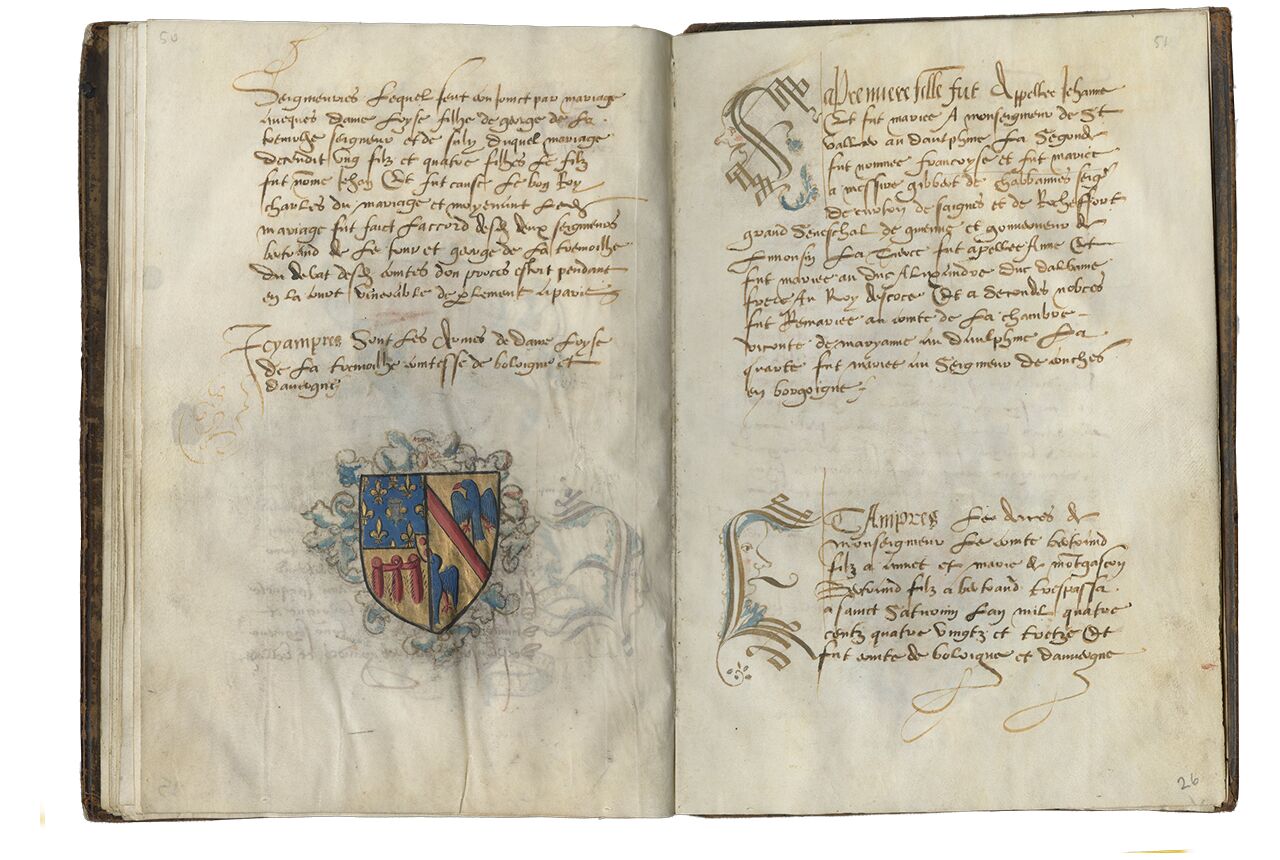 50
Seigneuries Lequel feut con Joinct par mariage
avecques dame Loyse filhe de george de La
tremolhe seigneur et de suly duquel mariage
decendit ung filz et quatre filhes Le filz
fut nome Jehan Et fut cause Le bon Roy
charles du mariage et moyenent Led
mariage fut faict Laccord desd deux seigneurs
bertrand de La tour et george de La tremoilhe
du debat desd contes don proces estoit pendant
en la court venerable de plement a paris
Icyampres Sont Les Armes de dame Loyse
de La tremoilhe contesse de boloigne et
dauvergne
51
La premiere fille fut Appellee Jehanne
Et fut mariee A monseigneur de St
vallier au daulphine La Segonde
fut nommee francoyse et fut mariee
a messire gibbert de chabbannes seigr
de curton de saignes et de Rocheffort
grand Seneschal de guienne et gouverneur de
Limonsin La Tierce fut apellee Anne Et
fut mariee au duc Alixandre duc dalbanie
frere Au Roy descoce Et a Secondes nobces
fut Remariee au conte de La chambre
viconte de mauryanne au daulphine La
quarte fut mariee au Seigneur de couches
en borgoigne
E TAmpres Les Armes de
monseigneur Le conte bertrand
filz a annet et marie de motgascon
Bertrand filz a bertrand trespassa
a sainct Saturnin Lan mil quatre
centz quatre vingtz et tretze Et
fut conte de boloigne et dauvergne
26